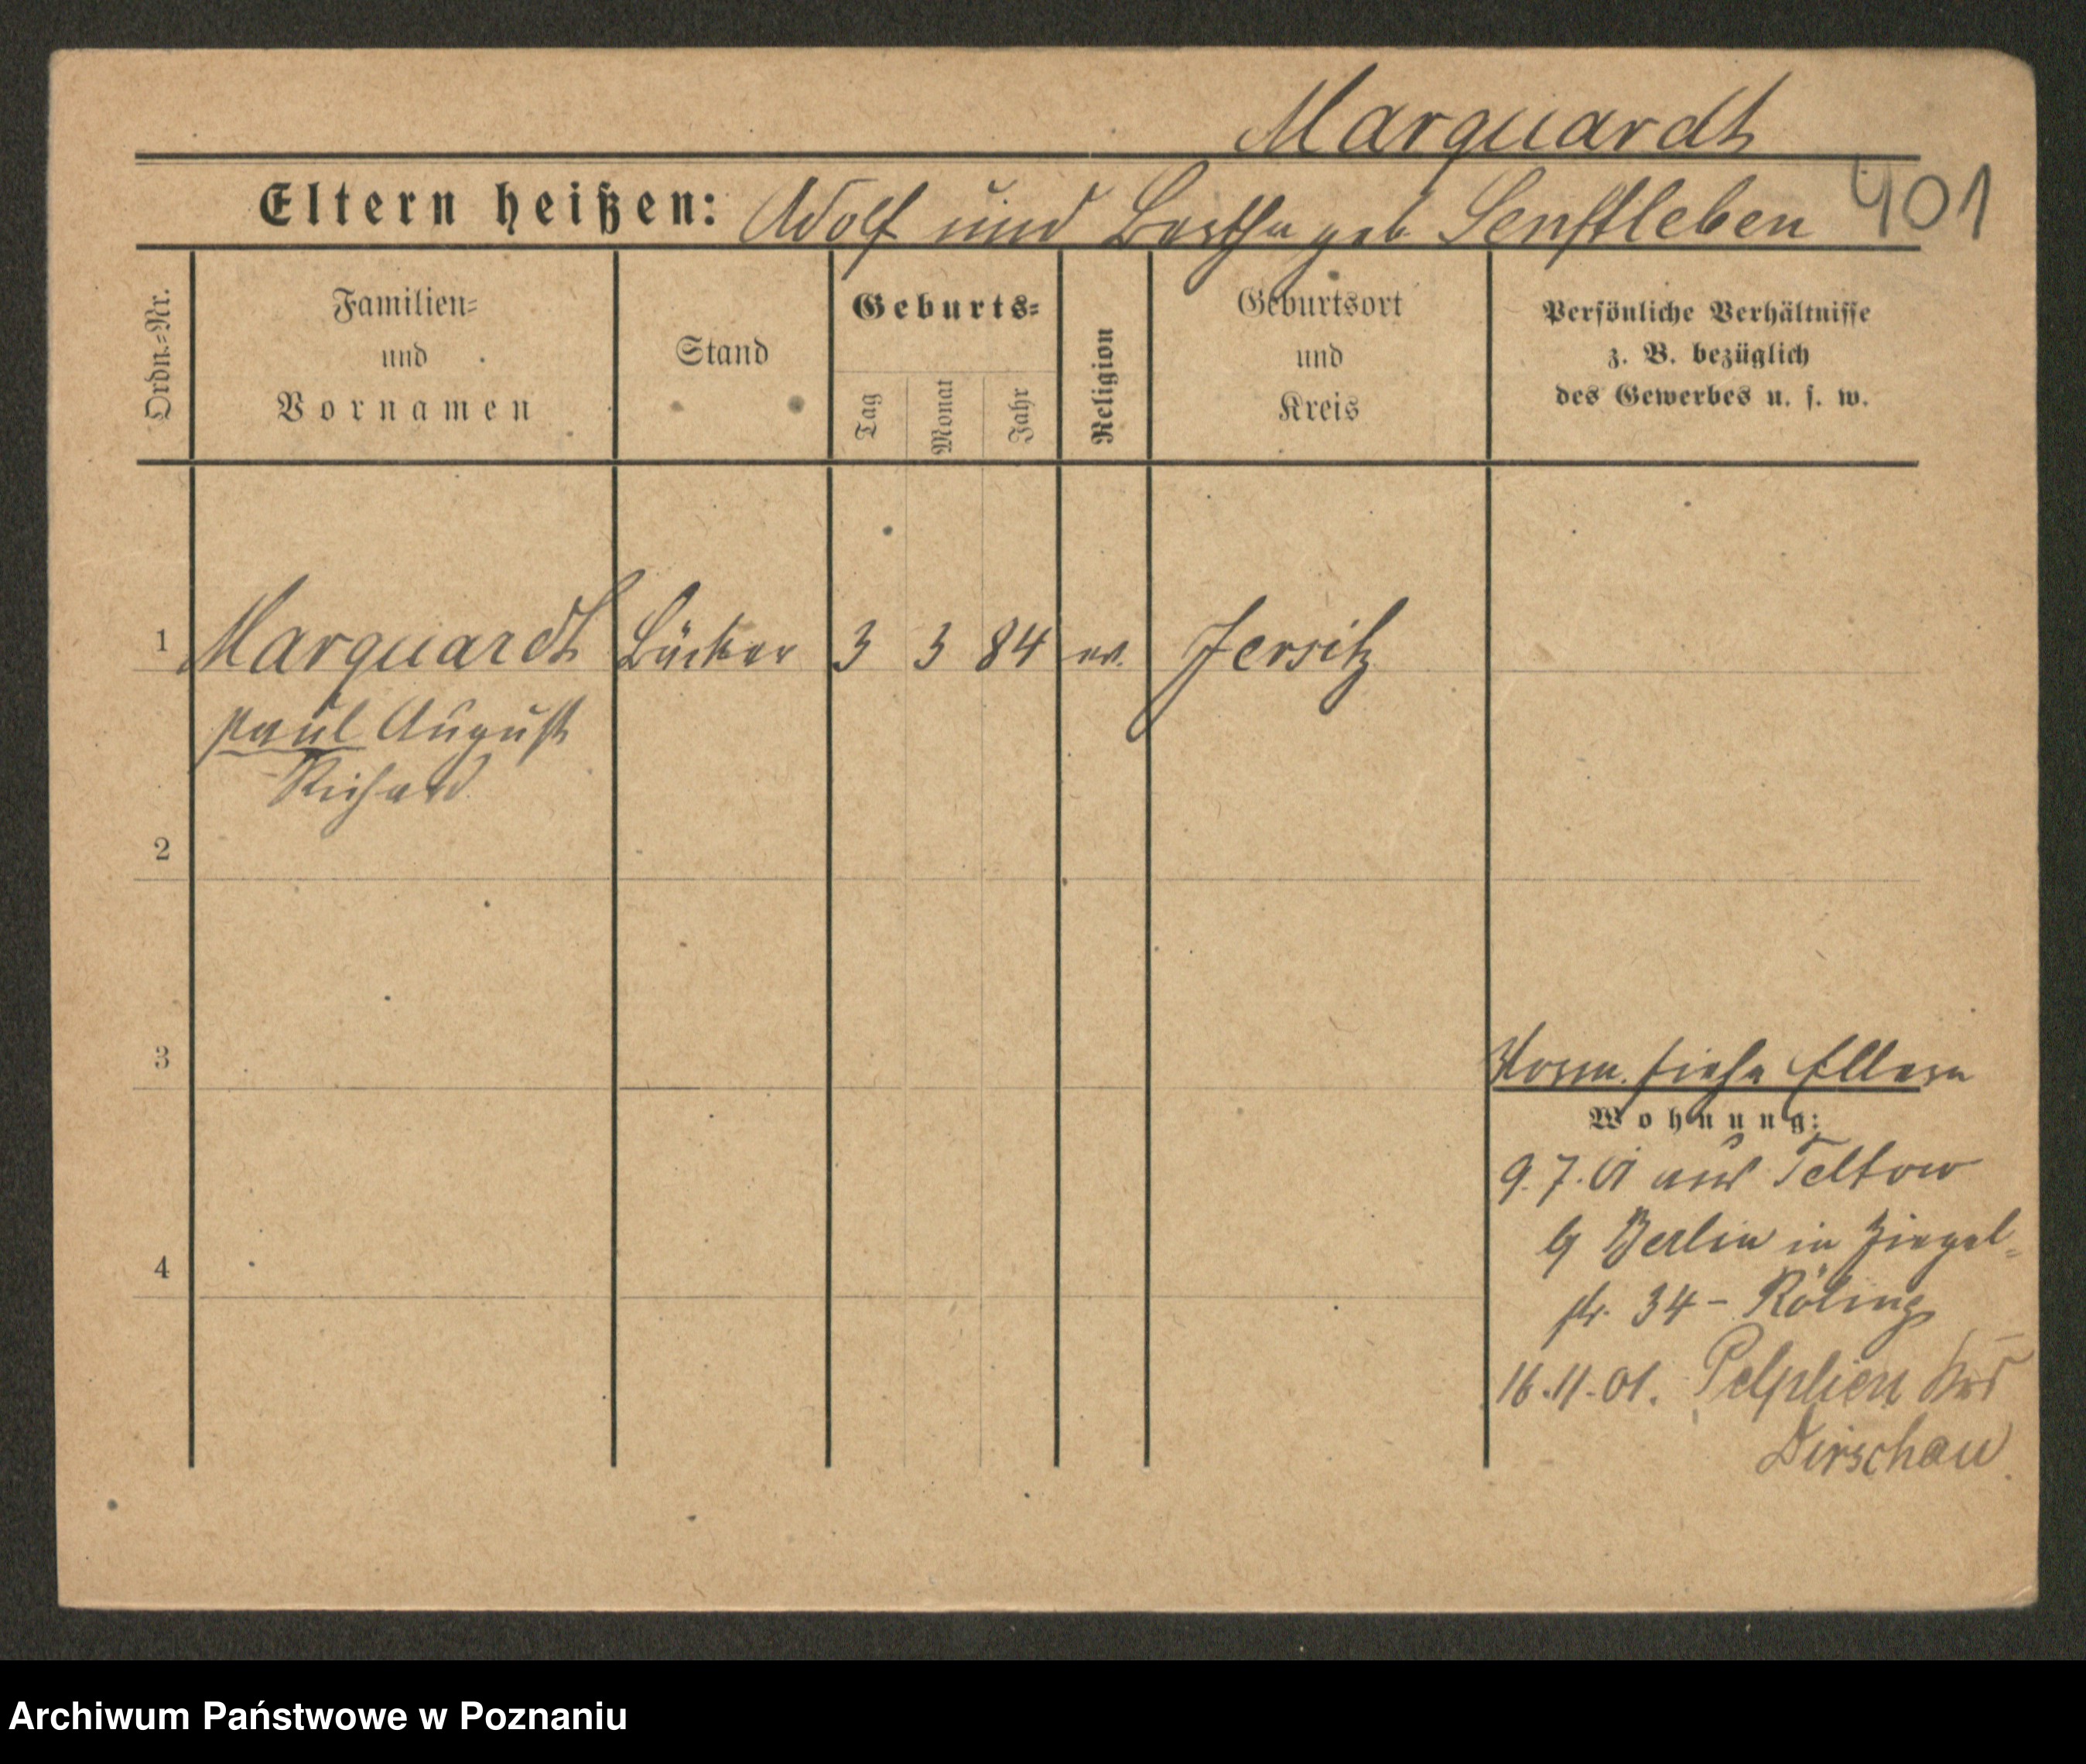 Marquardt
Eltern heißen: Adolf und Bertha geb Senftleben 401
Ordn.-Nr.
Familien-
und
Vornamen
Stand
Geburts-
Tag
Monat
Jahr
Religion
Geburtsort
und
Kreis
Persönliche Verhältnisse
z. B. bezüglich
des Gewerbes u. s. w.
1 Marquardt Bäcker 3 3 84 ev. Jersitz
Paul August
Richard
2
3
siehe Eltern
Wohnung:
9.7.01 aus Teltow
b/ Berlin in Ziegel-
str. 34 -
16.11.01. Pelplien
Dirschau
4
Archiwum Państwowe w Poznaniu